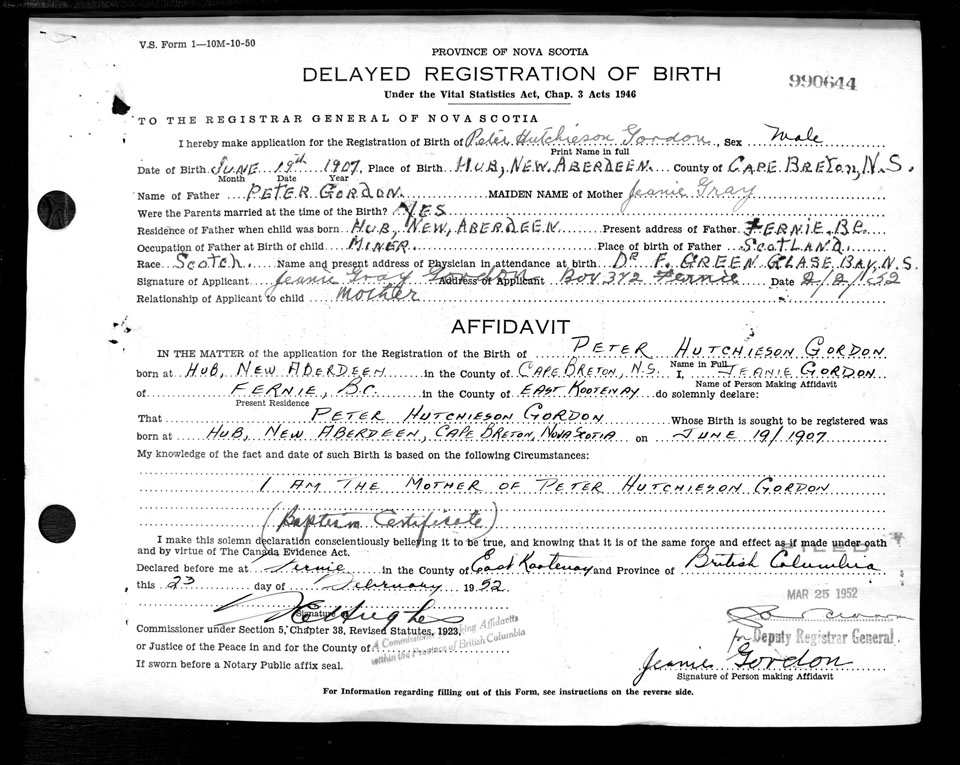 V.S. Form 1—10M-10-50
PROVINCE OF NOVA SCOTIA
DELAYED REGISTRATION OF BIRTH
990644
Under the Vital Statistics Act, Chap. 3 Acts 1946
TO THE REGISTRAR GENERAL OF NOVA SCOTIA
I hereby make application for the Registration of Birth of Peter Hutchieson Gordon, Sex Male
Print Name in full
Date of Birth JUNE 19th 1907, Place of Birth HUB, NEW ABERDEEN. County of CAPE BRETON, N.S.
Month Date Year
Name of Father PETER GORDON. MAIDEN NAME of Mother Jeanie Gray
Were the Parents married at the time of the Birth? YES
Residence of Father when child was born HUB, NEW, ABERDEEN Present address of Father. FERNIE. B.C.
Occupation of Father at Birth of child MINER. Place of birth of Father SCOTLAND.
Race Scotch. Name and present address of Physician in attendance at birth DR F. GREEN GLASE BAY, N.S.
Signature of Applicant Jeanie Gray Gordon Address of Applicant Box 372 Fernie Date 2/2/52
Relationship of Applicant to child Mother
AFFIDAVIT
IN THE MATTER of the application for the Registration of the Birth of PETER HUTCHIESON GORDON
Name in Full
born at HUB, NEW ABERDEEN in the County of CAPE BRETON, N.S. I, JEANIE GORDON
Name of Person Making Affidavit
of FERNIE, B.C. in the County of EAST KOOTENAY do solemnly declare:
Present Residence
That PETER HUTCHIESON GORDON Whose Birth is sought to be registered was
born at HUB, NEW ABERDEEN, CAPE BRETON, NOVA SCOTIA on JUNE 19/1907
My knowledge of the fact and date of such Birth is based on the following Circumstances:
I AM THE MOTHER OF PETER HUTCHIESON GORDON
(Baptism Certificate)
I make this solemn declaration conscientiously believing it to be true, and knowing that it is of the same force and effect as if made under oath
and by virtue of The Canada Evidence Act.
FILED
Declared before me at Fernie in the County of East Kootenay and Province of British Columbia
this 23 day of February 1952.
MAR 25 1952
Signature
Commissioner under Section 5, Chapter 38, Revised Statutes, 1923,
for Deputy Registrar General.
or Justice of the Peace in and for the County of
A Commissioner for taking Affidavits
within the Province of British Columbia
If sworn before a Notary Public affix seal.
Jeanie Gordon
Signature of Person making Affidavit
For Information regarding filling out of this Form, see instructions on the reverse side.